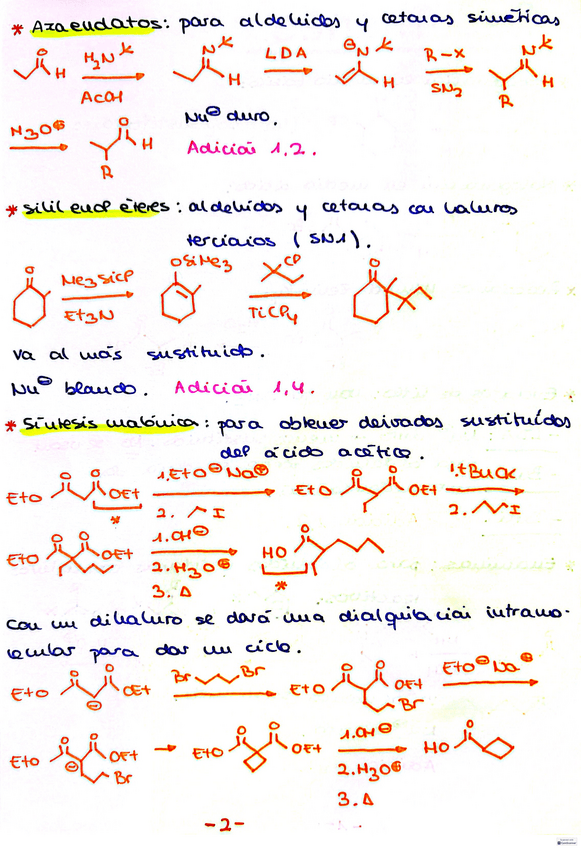 * Azaenolatos: para aldehidos y cetonas simeticas
O H H₂N AcOH N H LDA ⊖N H R-X SN₂ N H R
H₃O⊕ O H R Nu⊖ duro.
Adición 1,2.
* Silil enol éteres: aldehidos y cetonas con haluros
terciarios (SN1).
O Me₃SiCl Et₃N OSiMe₃ Cl TiCl₄ O
Va al más sustituido.
Nu⊖ blando. Adición 1,4.
* Síntesis malónica: para obtener derivados sustituídos
del ácido acético.
EtO O O OEt * 1.EtO⊖Na⊕ 2. I EtO O O OEt 1.tBuOK 2. I
EtO O O OEt 1.OH⊖ 2.H₃O⊕ 3.Δ HO O *
Con un dihaluro se dará una dialquilación intramo-
lecular para dar un ciclo.
EtO O O OEt ⊖ Br Br EtO O O OEt Br EtO⊖Na⊕
EtO O O OEt ⊖ Br EtO O O OEt 1.OH⊖ 2.H₃O⊕ 3.Δ HO O
-2-